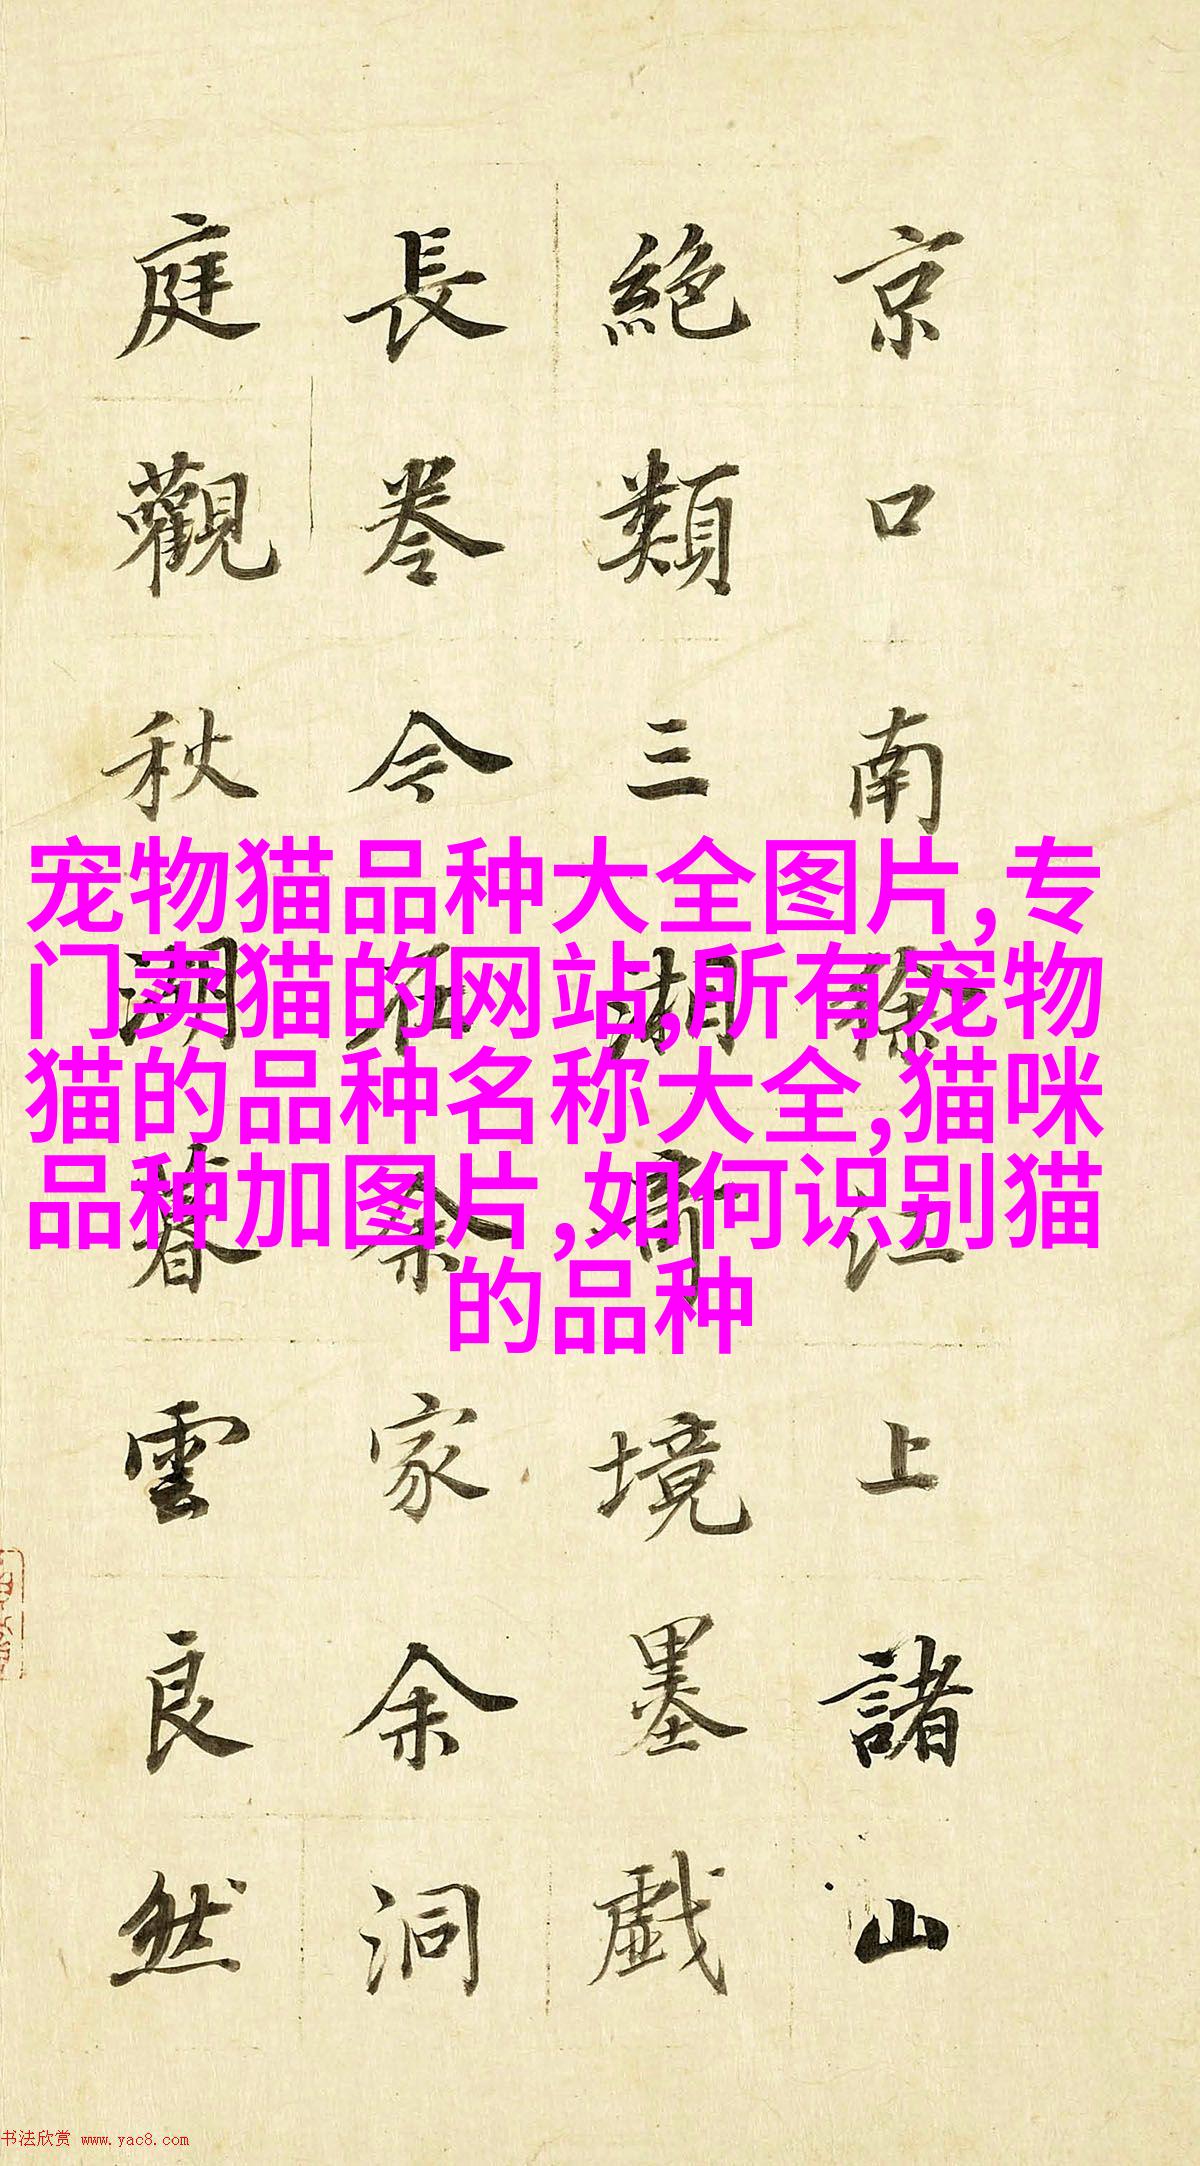 京口南徐江上諸山
絶類三湘奇境墨戲
長卷今在余家余洞
庭觀秋湖暮雲良然
宠物猫品种大全图片,专
门卖猫的网站,所有宠物
猫的品种名称大全,猫咪
品种加图片,如何识别猫
的品种
书法欣赏 www.yac8.com